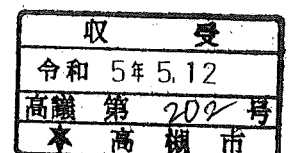 収 受
令和 5年 5.12
高議 第 202 号
★ 高槻市